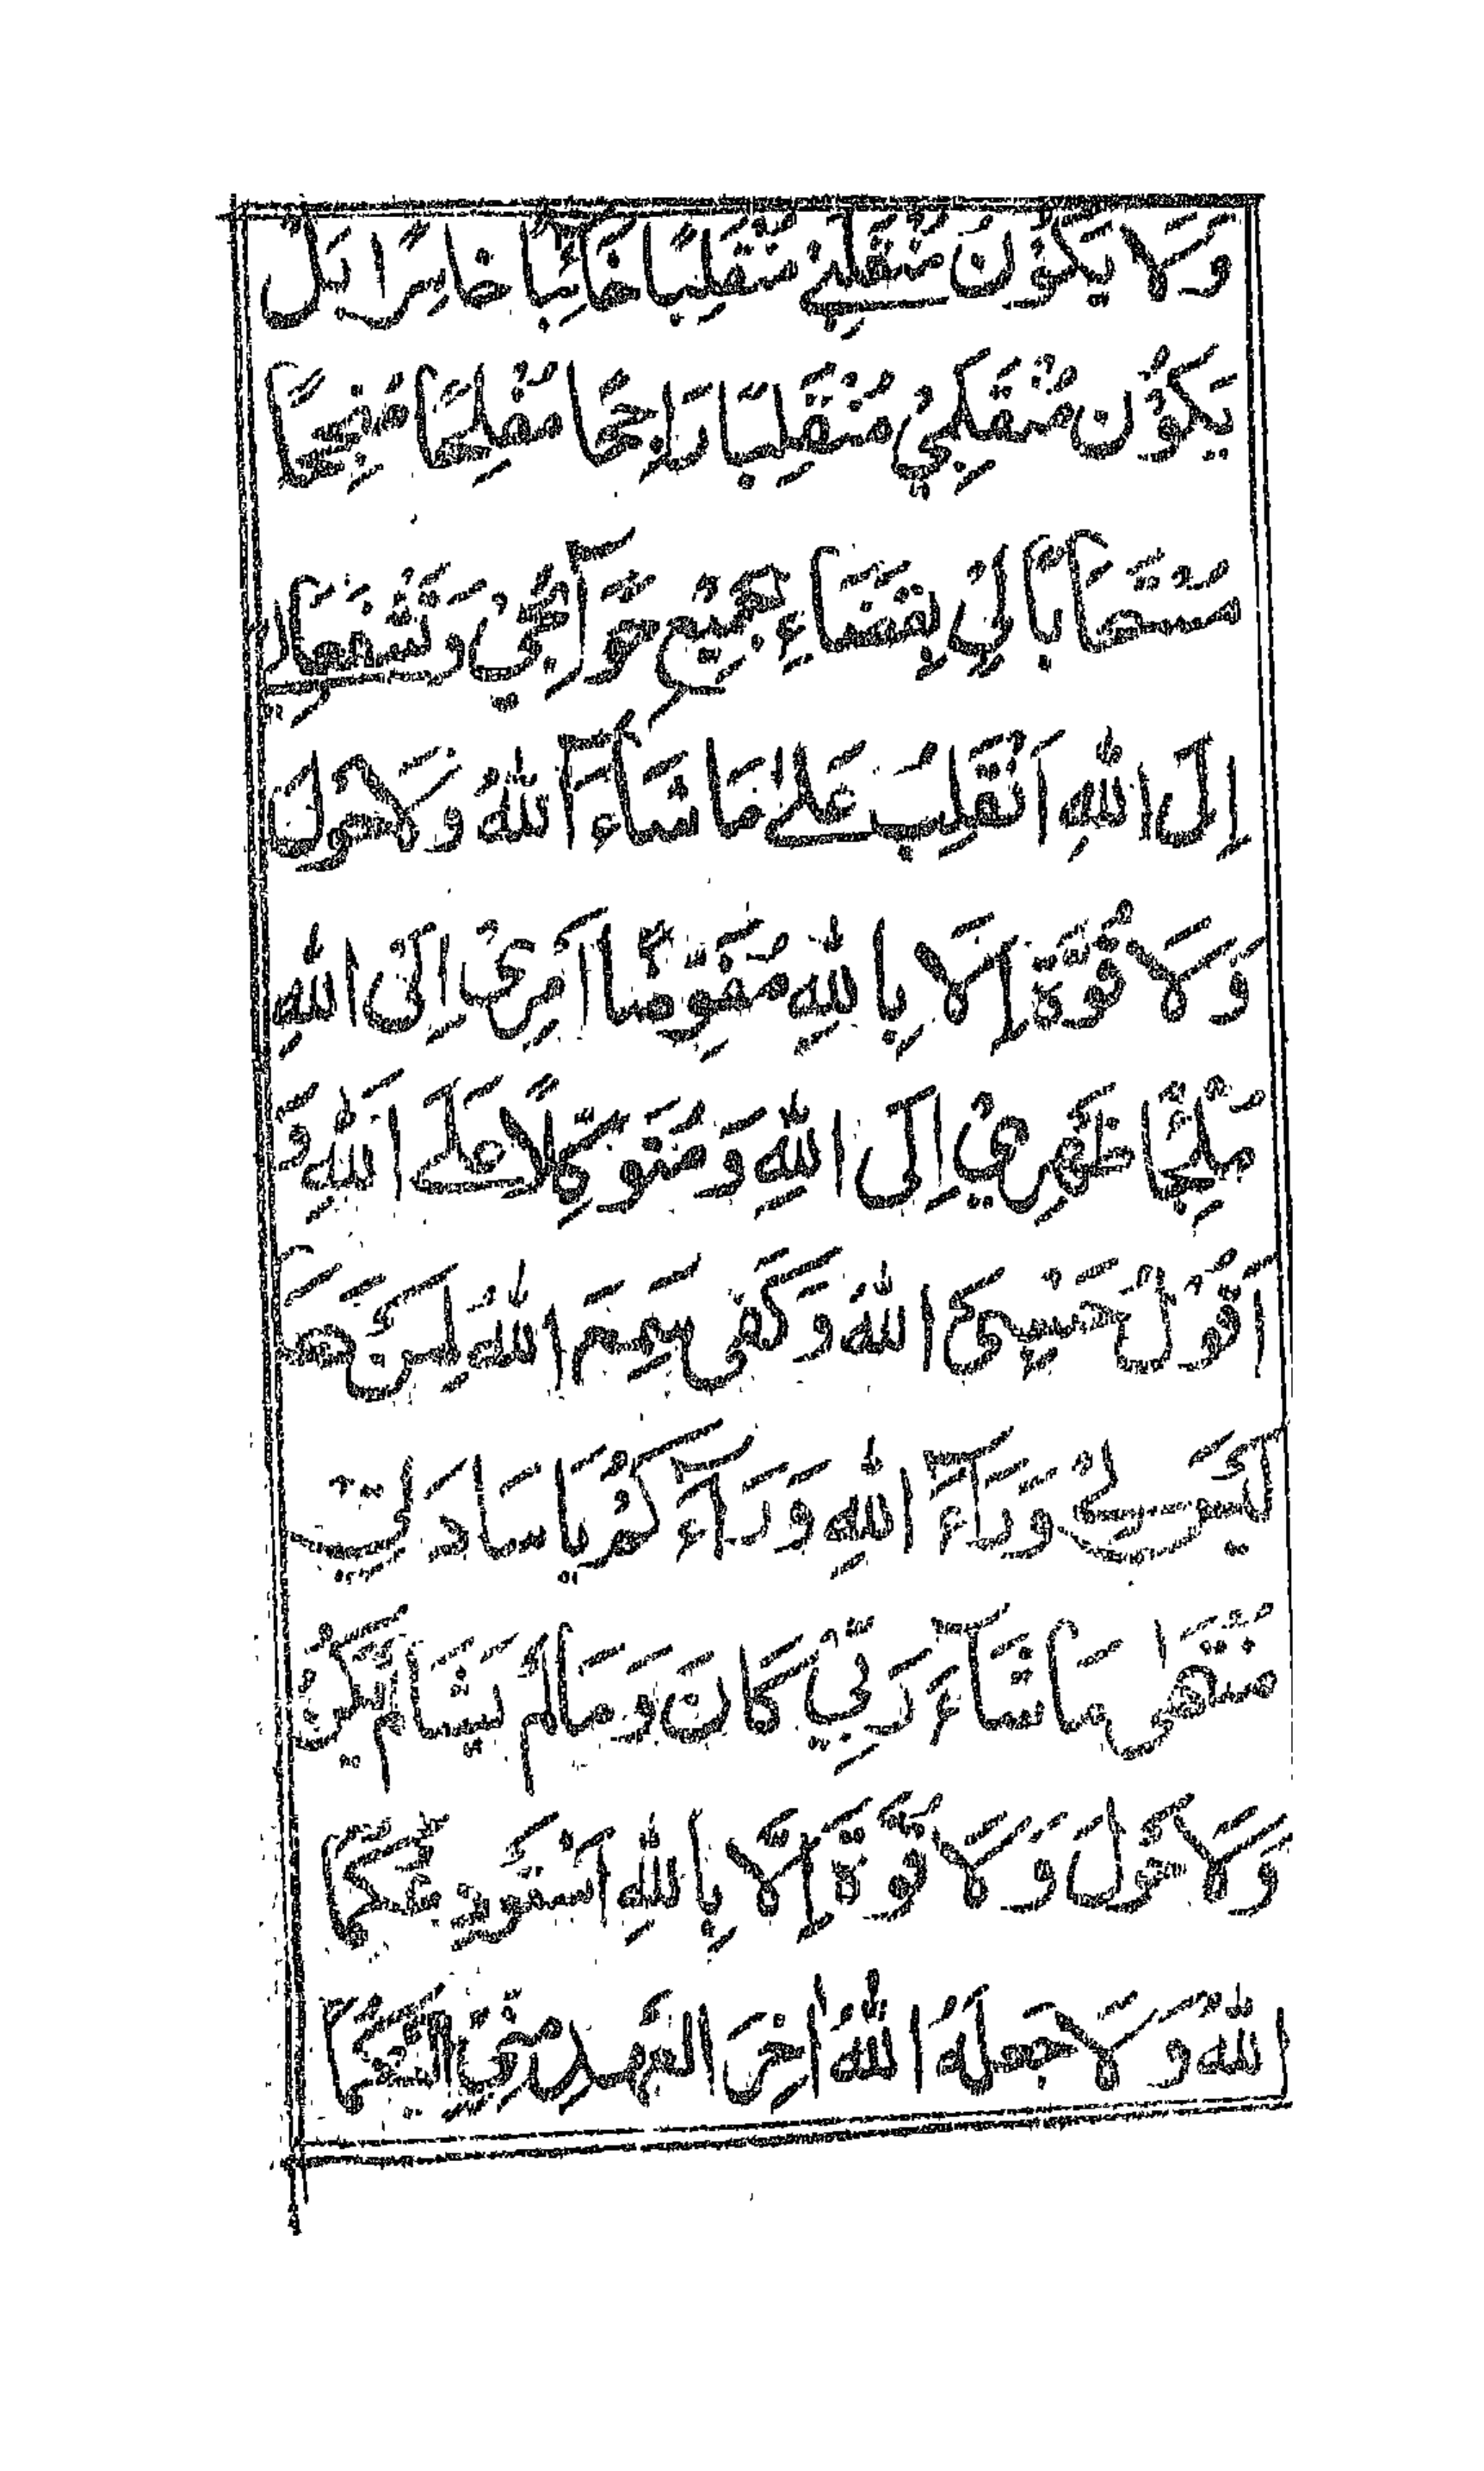 وَلَا يَكُوْنُ مُنْقَلَبِيْ مُنْقَلِبًا خَائِبًا خَاسِرًا بَلْ
يَكُوْنُ مُنْقَلَبِيْ مُنْقَلِبًا رَاجِحًا مُفْلِحًا مُنْجِحًا
مُسْتَجَابًا لِيْ بِقَضَاءِ جَمِيْعِ حَوَآئِجِيْ وَتَشْفَعَا لِيْ
اِلَى اللهِ اَنْقَلِبُ عَلٰے مَا شَآءَ اللهُ وَلَا حَوْلَ
وَلَا قُوَّةَ اِلَّا بِاللهِ مُفَوِّضًا اَمْرِيْ اِلَى اللهِ
مُلْجِئًا ظَهْرِيْ اِلَى اللهِ وَمُتَوَكِّلًا عَلَے اللهِ وَ
اَقُوْلُ حَسْبِيَ اللهُ وَكَفٰى سَمِعَ اللهُ لِمَنْ دَعَا
لَيْسَ لِيْ وَرَآءَ اللهِ وَرَآءَ كُمْ يَا سَادَتِيْ
مُنْتَهٰى مَا شَآءَ رَبِّيْ كَانَ وَمَا لَمْ يَشَاْ لَمْ يَكُنْ
وَلَا حَوْلَ وَلَا قُوَّةَ اِلَّا بِاللهِ اَسْتَوْدِعُكُمَا
اللهَ وَلَا جَعَلَهُ اللهُ اٰخِرَ الْعَهْدِ مِنِّيْ اِلَيْكُمَا